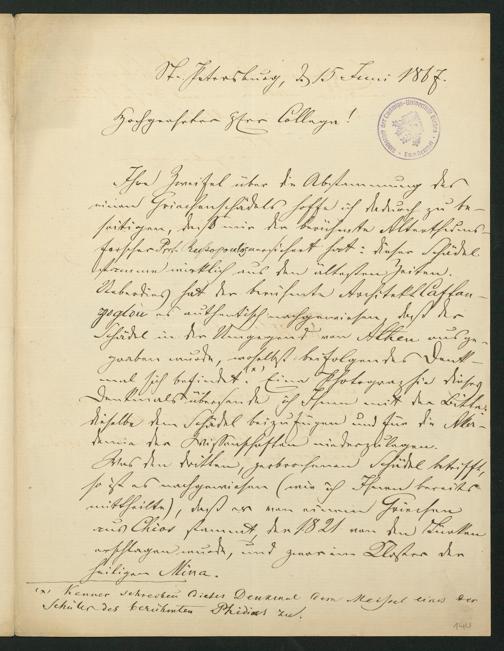 St. Petersburg, d. 15 Juni 1867.
Hochgeehrter Herr College!
Ihre Zweifel über die Abstammung des
einen Griechenschädels hoffe ich dadurch zu be-
seitigen, daß mir der berühmte Alterthums-
forscher Prof. versichert hat: dieser Schädel
stamme wirklich aus den ältesten Zeiten.
Ueberdies hat der berühmte Architekt Caftan-
zoglou es authentisch nachgewiesen, daß der
Schädel in der Umgegend von Athen ausge-
graben wurde, woselbst beifolgendes Denk-
mal sich befindet.(*) Eine Photographie dieses
Denkmals übersende ich Ihnen mit der Bitte,
dieselbe dem Schädel beizufügen und für die Aka-
demie der Wissenschaften niederzulegen.
Was den dritten, zerbrochenen Schädel betrifft,
so ist es nachgewiesen (wie ich Ihnen bereits
mittheilte), daß er von einem Griechen
aus Chios stammt, der 1821 von den Türken
erschlagen wurde, und zwar im Kloster der
heiligen Mina.
(*) Kenner schreiben dieses Denkmal dem Meißel eines der
Schüler des berühmten Phidias zu.